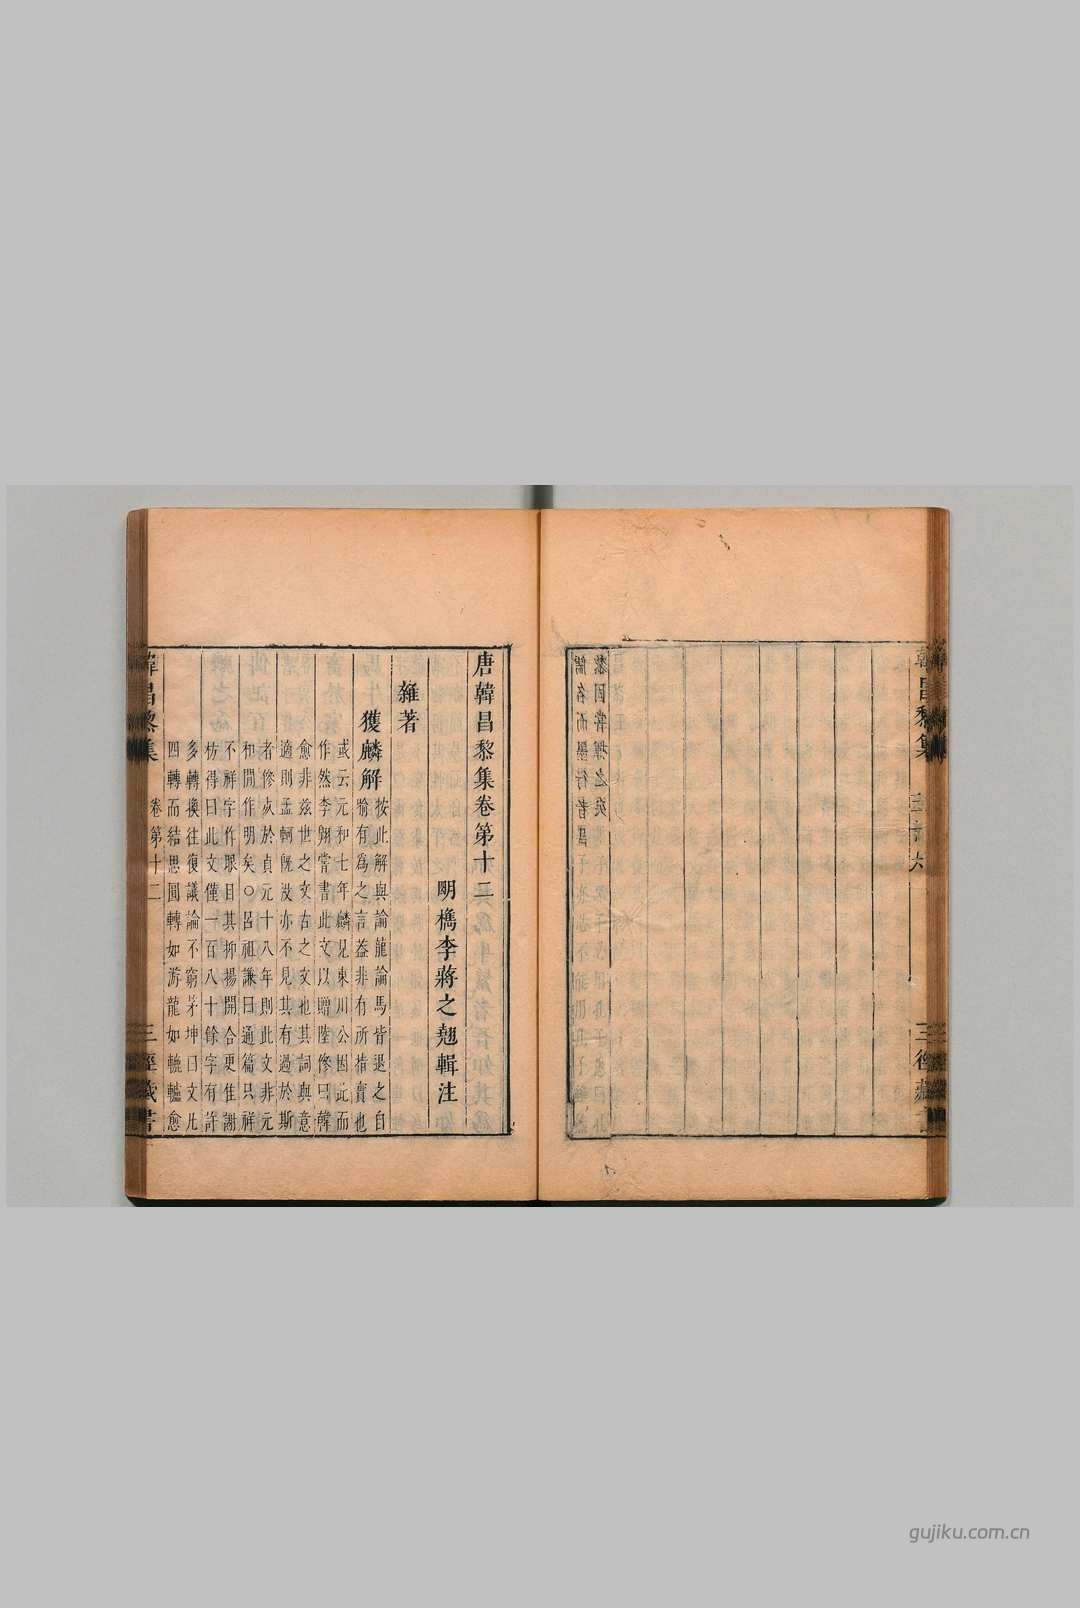 韓昌黎集
三徑藏
黎因嘗揮之矣
儒名而墨行者昌
唐韓昌黎集卷第十二
明檇李蔣之翹輯注
雜著
獲麟解
按此解與論龍論馬皆退之自
喻有爲之言葢非有所指實也
或云元和七年麟見東川公因此而
作然李翺嘗書此文以贈陸傪曰韓
愈非兹世之文古之文也其詞與意
適則孟軻旣没亦不見其有過於斯
者傪㱙於貞元十八年則此文非元
和間作明矣○呂祖謙曰通篇只祥
不祥字作眼目其抑揚開合更佳謝
枋得曰此文僅一百八十餘字有許
多轉換往復議論不窮茅坤曰文凡
四轉而結思圓轉如游龍如轆轤愈
韓昌黎集
卷第十二
三徑藏書
gujiku.com.cn